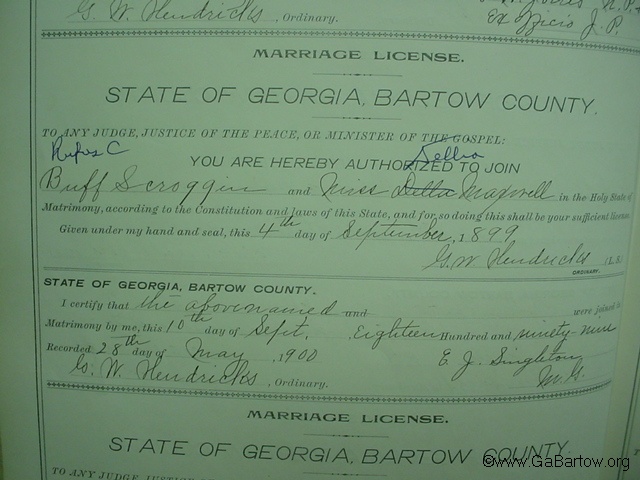 G. W. Hendricks, Ordinary.
Ex Officio J. P.
MARRIAGE LICENSE.
STATE OF GEORGIA, BARTOW COUNTY.
TO ANY JUDGE, JUSTICE OF THE PEACE, OR MINISTER OF THE GOSPEL:
Rufus C
YOU ARE HEREBY AUTHORIZED TO JOIN
Buff Scroggin and Miss Della Maxwell in the Holy State of
Matrimony, according to the Constitution and laws of this State, and for so doing this shall be your sufficient license.
Given under my hand and seal, this 4th day of September, 1899
G. W. Hendricks (L. S.)
ORDINARY.
STATE OF GEORGIA, BARTOW COUNTY.
I certify that the above named and were joined in
Matrimony by me, this 10th day of Sept. Eighteen Hundred and ninety-nine
Recorded 28th day of May, 1900 E. J. Singleton
G. W. Hendricks, Ordinary. M. G.
MARRIAGE LICENSE.
STATE OF GEORGIA, BARTOW COUNTY.
©www.GaBartow.org